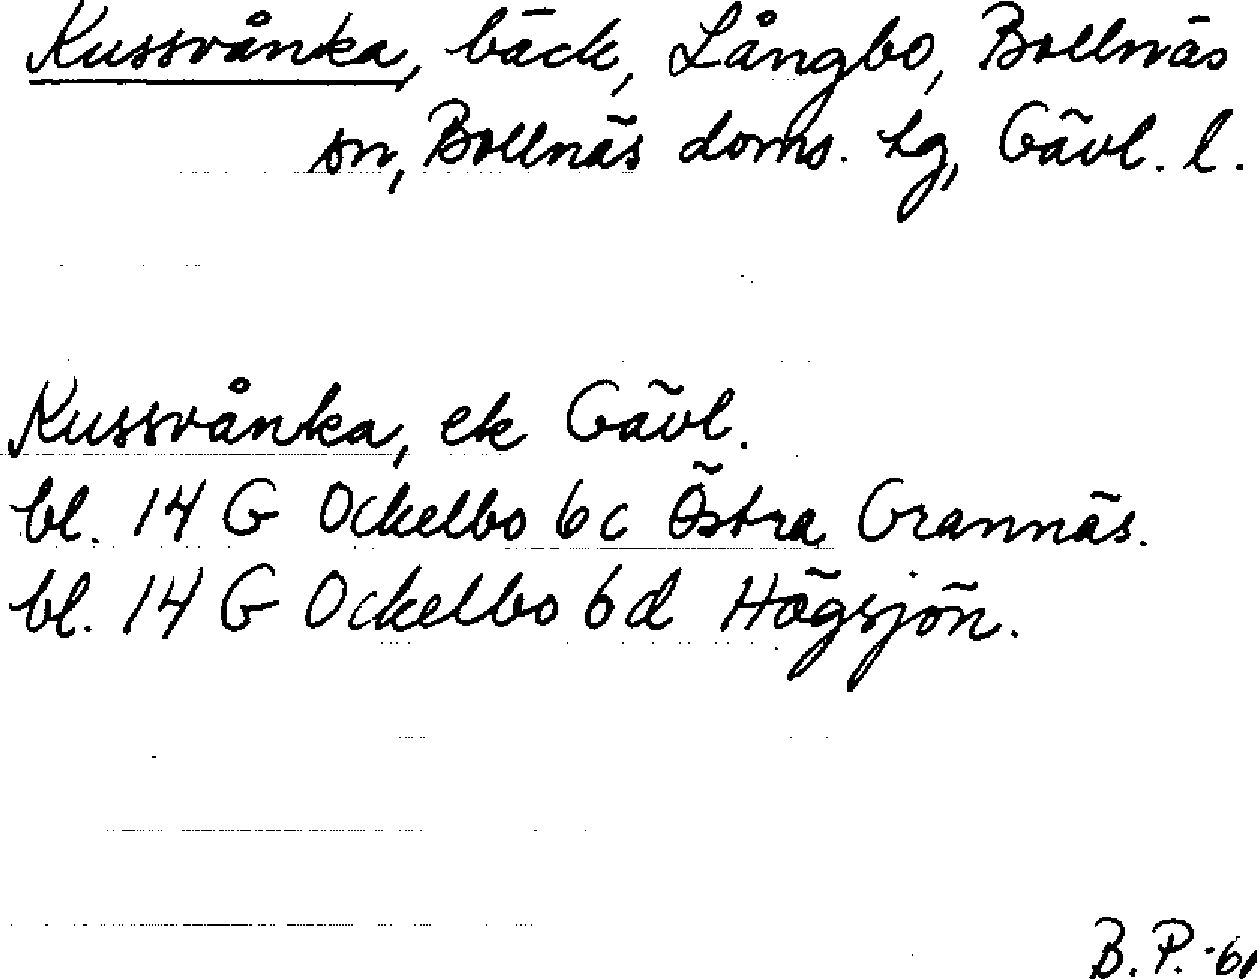 Kussvånka, bäck, Långbo, Bollnäs
sn, Bollnäs doms. hg, Gävl. l.
Kussvånka, ek Gävl.
bl. 14 G Ockelbo 6c Östra Grannäs.
bl. 14 G Ockelbo 6d Högsjön.
B. P.